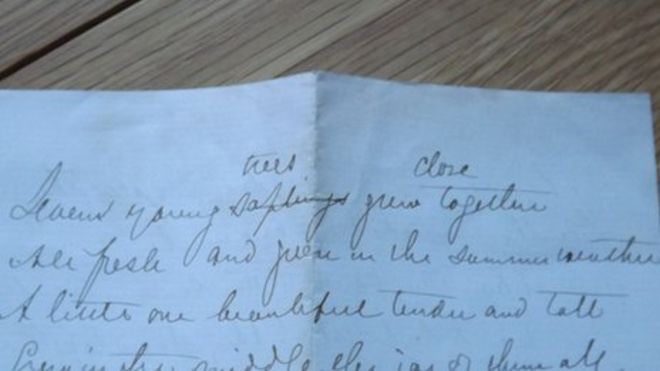 trees close
Sevens young saplings grew together
All fresh and green in the summer weather
A little one beautiful tender and tall
Grew in the middle the joy of them all